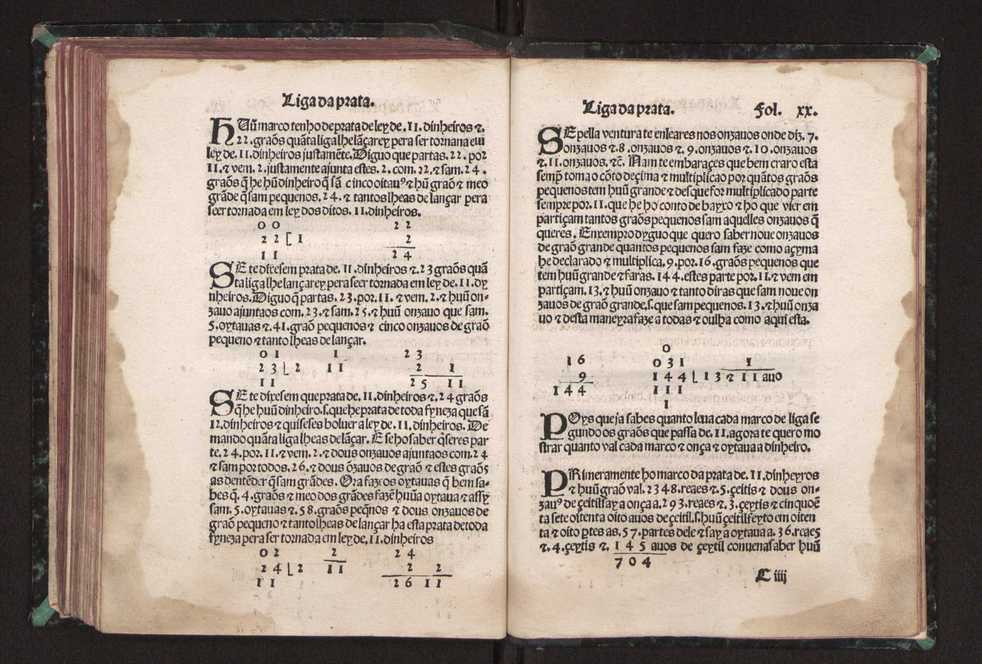 Liga da prata.
HUũ marco tenho de prata de ley de.11.dinheiros ⁊.
22.graõs quãta liga lhe lãçarey pera ser tornana em
ley de.11.dinheiros justamẽte.Diguo que partas.22.por
11.⁊ vem.2.justamente ajunta estes.2.com.22.⁊ sam.24.
graõs q̃ he hũ dinheiro q̃ sã cinco oitauᵒ ⁊ hũ graõ ⁊ meo
grãde q̃ sam pequenos.24.⁊ tantos lheas de lançar pera
seer tornada em ley dos ditos.11.dinheiros.
0 0 2 2
2 2 [ 1 2
1 1 2 4
SE te dixesem prata de.11.dinheiros ⁊.23 graõs quã
ta liga lhe lançarey pera seer tornada em ley de.11.dy
nheiros.Diguo q̃ partas.23.por.11.⁊ vem.2.⁊ huũ on-
zauo ajuntaos com.23.⁊ sam.25.⁊ huũ onzauo que sam.
5.oytauas ⁊.41.graõ pequenos ⁊ cinco onzauos de graõ
pequeno ⁊ tanto lheas de lançar.
0 1 1 2 3
2 3 [ 2 1 1 2 1
1 1 2 5 1 1
SE te dixesem que prata de.11.dinheiros ⁊.24 graõs
q̃ he huũ dinheiro.s.que he prata de toda fyneza que sã
12.dinheiros ⁊ quiseses boluer a ley de.11.dinheiros. De
mando quãta liga lheas de lãçar. E se ho saber q̃seres par
te.24.por.11.⁊ vem.2.⁊ dous onzauos ajuntaos com.24
⁊ sam por todos.26.⁊ dous õzauos de graõ ⁊ estes graõs
as de ntẽder q̃ sam grãdes. Ora faz os oytauas q̃ bem sa-
bes q̃.4.graõs ⁊ meo dos grãdes fazẽ huũa oytaua ⁊ assy
sam.5.oytauas ⁊.58.graõs peq̃nos ⁊ dous onzauos de
graõ pequeno ⁊ tanto lheas de lançar ha esta prata de toda
fyneza pera ser tornada em ley de.11.dinheiros
0 2 2 2 4
2 4 [ 2 1 1 2 2
1 1 2 6 1 1
Liga da prata. Fol. xx.
SE pella ventura te enleares nos onzauos onde diz. 7.
onzauos ⁊.8.onzauos ⁊. 9.onzauos ⁊.10.onzauos
⁊.11.onzauos, ⁊c̃. Nam te embaraçes que bem craro esta
semp̃ toma o cõto de çima ⁊ multiplica o por quãtos graõs
pequenos tem huũ grande ⁊ desque for multiplicado parte
sempre por.11.que he ho conto de bayxo ⁊ ho que vier em
partiçam tantos graõs pequenos sam aquelles onzauos q̃
queres. Enxempro dyguo que quero saber noue onzauos
de graõ grande quantos pequenos sam faze como açyma
he declarado ⁊ multiplica.9.por.16.graõs pequenos que
tem huũ grande ⁊ faras.144.estes parte por.11.⁊ vem em
partiçam.13.⁊ huũ onzauo ⁊ tanto diras que sam noue on
zauos de graõ grande,s.que sam pequenos.13.⁊ huũ onza
uo ⁊ desta maneyra faze a todas ⁊ oulha como aqui esta.
0
1 6 0 3 1 1
9 1 4 4 [ 1 3 ⁊ 1 1 auo
1 4 4 1 1 1
1
POys que ja sabes quanto leua cada marco de liga se
gundo os graõs que passa de.11.agora te quero mo
strar quanto val cada marco ⁊ onça ⁊ oytaua a dinheiro.
PRimeramente ho marco da prata de.11.dinheyros
⁊ huũ graõ val.2348.reaes ⁊.5.çeitis ⁊ dous on-
zauᵒˢ de çeitil say a onça a.293.reaes ⁊.3.çeytis ⁊ cinquoẽ
ta sete oitenta oito auos de çeitil.s.huũ çeitil feyto em oiten
ta ⁊ oito ptes as.57.partes dele ⁊ say a oytaua a.36.reaes
⁊.4.çeytis ⁊.145 auos de çeytil conuem a saber huũ
704
C iiij